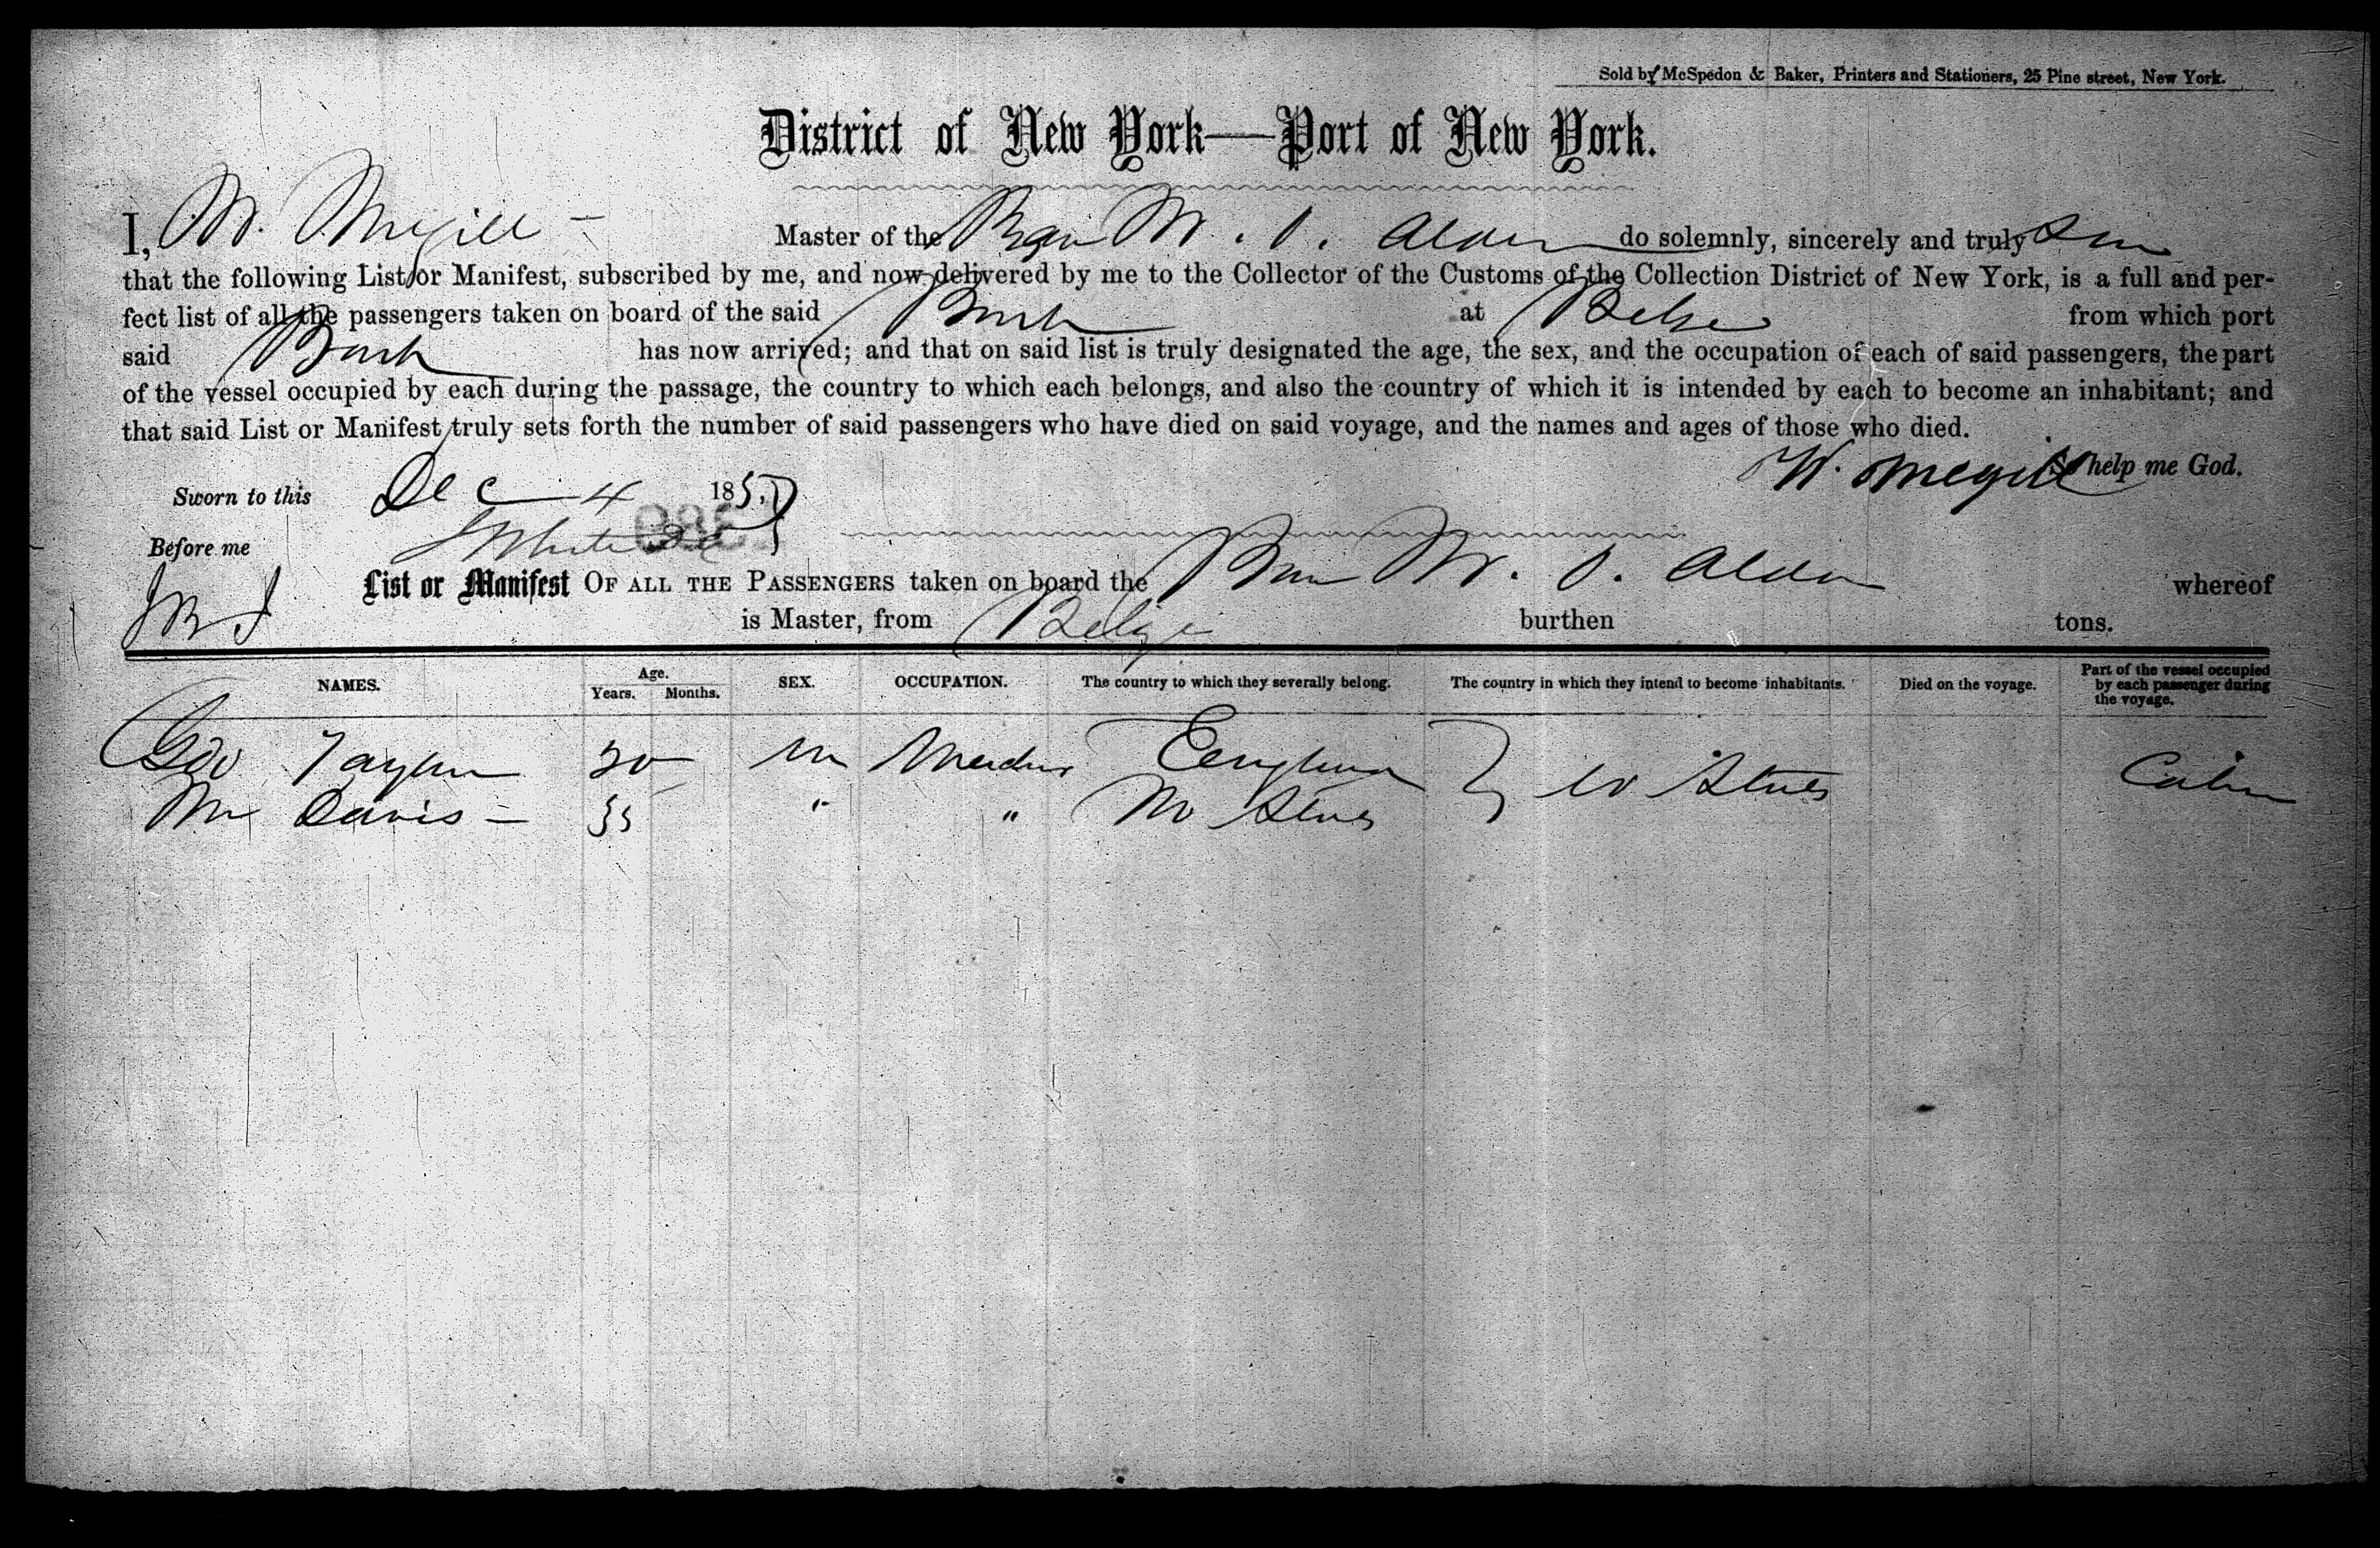 Sold by McSpedon & Baker, Printers and Stationers, 25 Pine street, New York.
District of New York—Port of New York.
I, W. Megill — Master of the W. Alden do solemnly, sincerely and truly
that the following List or Manifest, subscribed by me, and now delivered by me to the Collector of the Customs of the Collection District of New York, is a full and per-
fect list of all the passengers taken on board of the said Bark at Belize from which port
said Bark has now arrived; and that on said list is truly designated the age, the sex, and the occupation of each of said passengers, the part
of the vessel occupied by each during the passage, the country to which each belongs, and also the country of which it is intended by each to become an inhabitant; and
that said List or Manifest truly sets forth the number of said passengers who have died on said voyage, and the names and ages of those who died.
W. Megill So help me God.
Sworn to this Dec 4 185
Before me
List or Manifest OF ALL THE PASSENGERS taken on board the W. Alden whereof
is Master, from Belize burthen tons.
NAMES. Age. Years. Months. SEX. OCCUPATION. The country to which they severally belong. The country in which they intend to become inhabitants. Died on the voyage. Part of the vessel occupied by each passenger during the voyage.
Geo Taylor 30 m England U States Cabin
Davis — 35 " " States